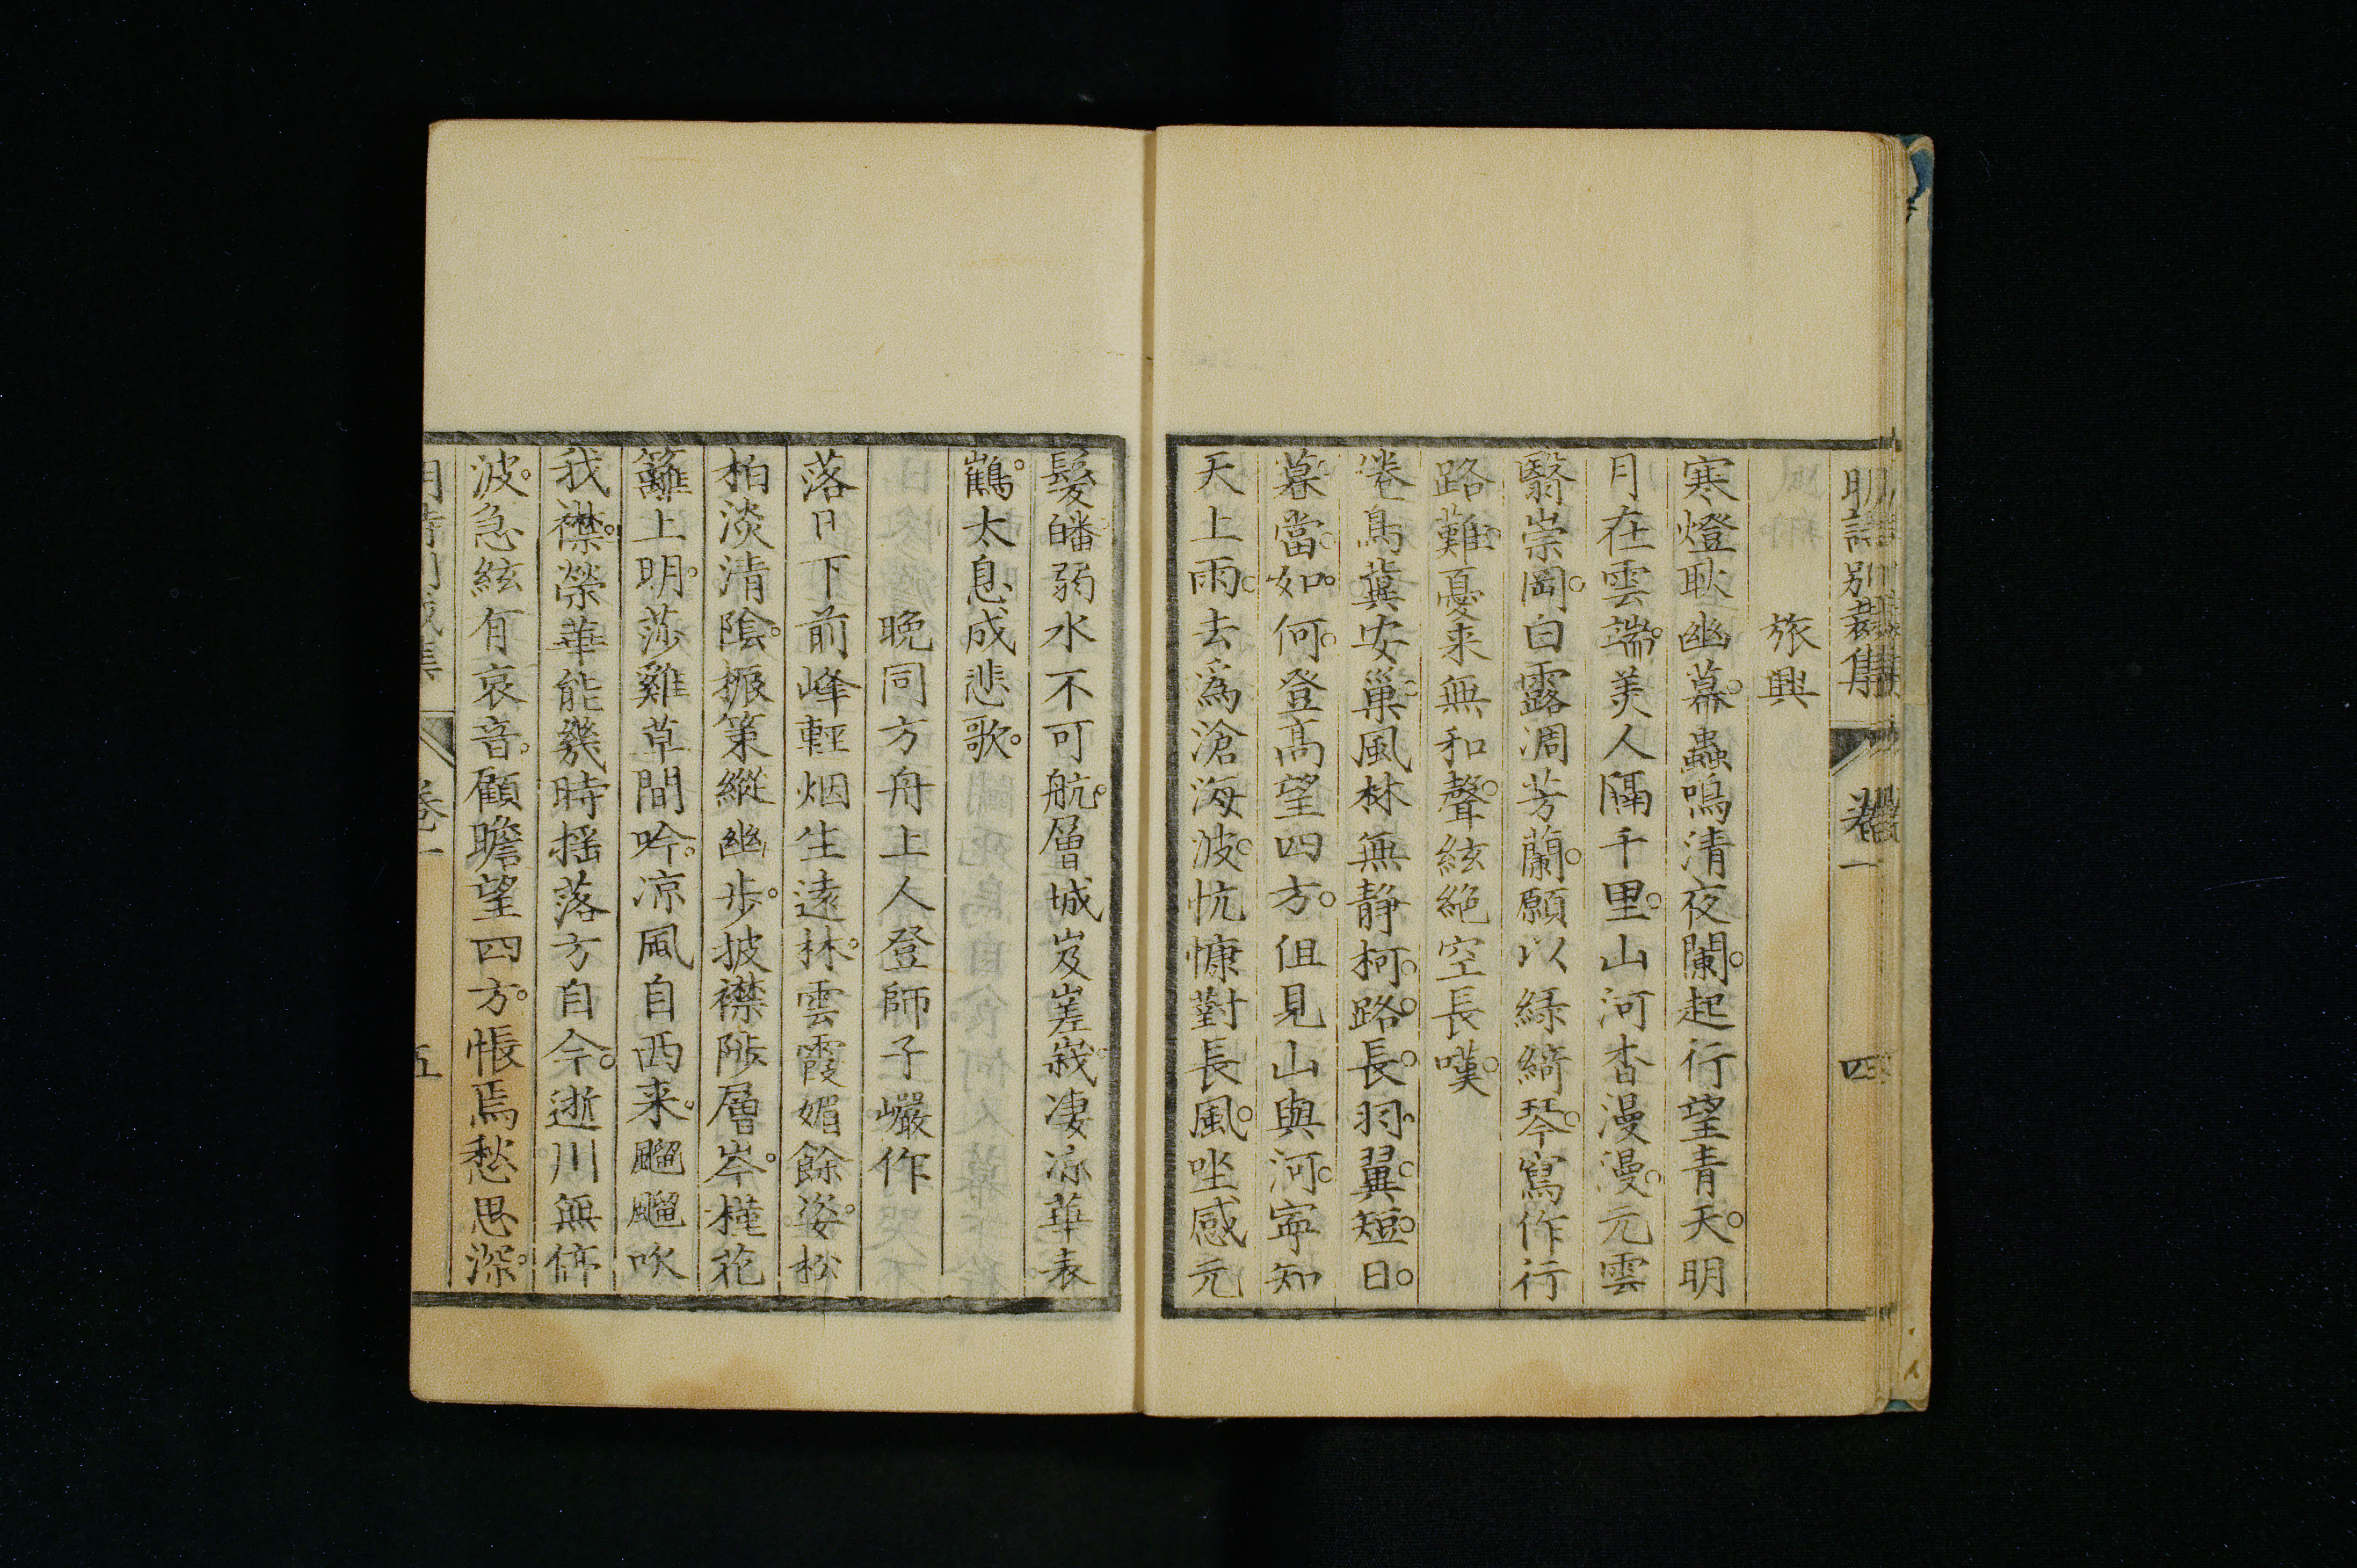 明詩別裁集 卷一 四
旅興
寒燈耿幽幕。蟲鳴清夜闌。起行望青天。明
月在雲端。美人隔千里。山河杳漫漫。元雲
翳崇岡。白露凋芳蘭。願以綠綺琴。寫作行
路難。憂来無和聲。絃絕空長嘆。
倦鳥冀安巢。風林無靜柯。路。長。羽。翼。短。日。
暮。當。如。何。登高望四方。但見山與河。寧知
天上雨。去爲滄海波。忼慷對長風。坐感元
髮皤。弱水不可航。層城岌嵳峩。凄涼華表
鶴。太息成悲歌。
晚同方舟上人登師子巖作
落日下前峰。輕烟生遠林。雲霞媚餘姿。松
柏淡清陰。振策縱幽步。披襟陟層岑。槿花
籬上明。莎雞草間吟。凉風自西来。飀飀吹
我襟。榮華能幾時。揺落方自今。逝川無停
波。急絃有哀音。顧瞻望四方。悵焉愁思深。
卷一 五